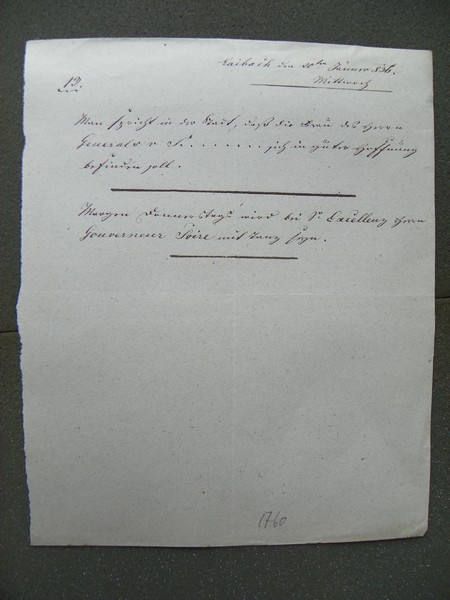 Laibach den 20ten Jänner 836.
Mittwoch
13.
Man spricht in der Stadt, daß die Frau des Herrn
Generals v S. . . . . . . sich in guter Hoffnung
befinden soll.
Morgen Donnerstags wird bei Sr Excellenz Herrn
Gouverneur Soiré mit Tanz seyn.
1760